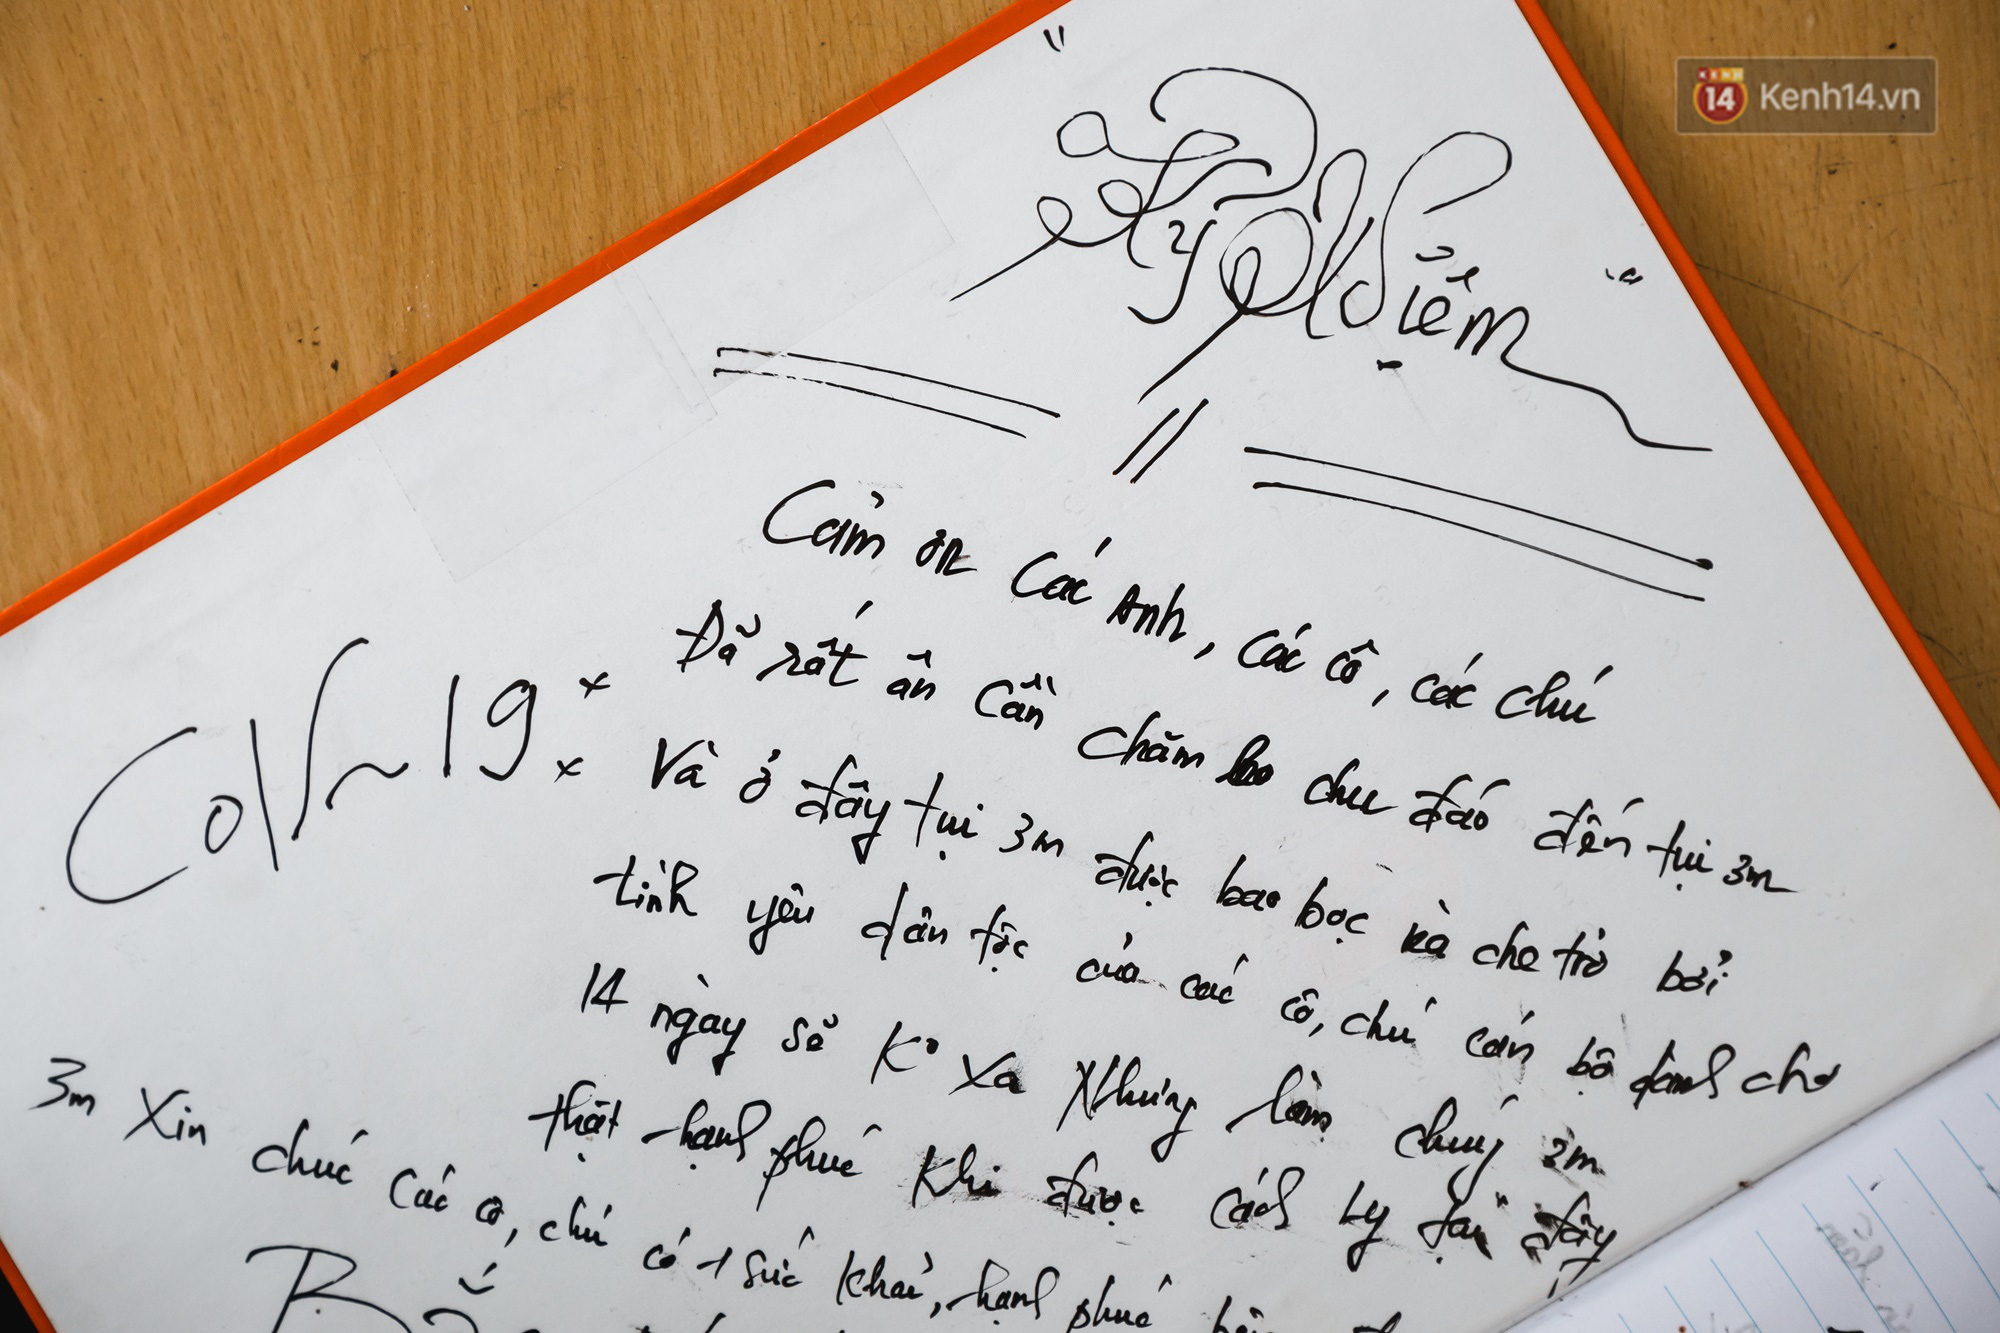 KENH 14 Kenh14.vn
" Kỷ Niệm "
Cảm ơn các Anh, các cô, các chú
Đã rất ân cần chăm lo chu đáo đến tụi 3m
Và ở đây tụi 3m được bao bọc và che trở bởi
tình yêu dân tộc của các cô, chú cán bộ dành cho
14 ngày sẽ ko xa Nhưng làm chúng 3m
thật hạnh phúc khi được cách ly tại đây
3m Xin chúc các cô, chú có 1 sức khoẻ, hạnh phúc bên
19